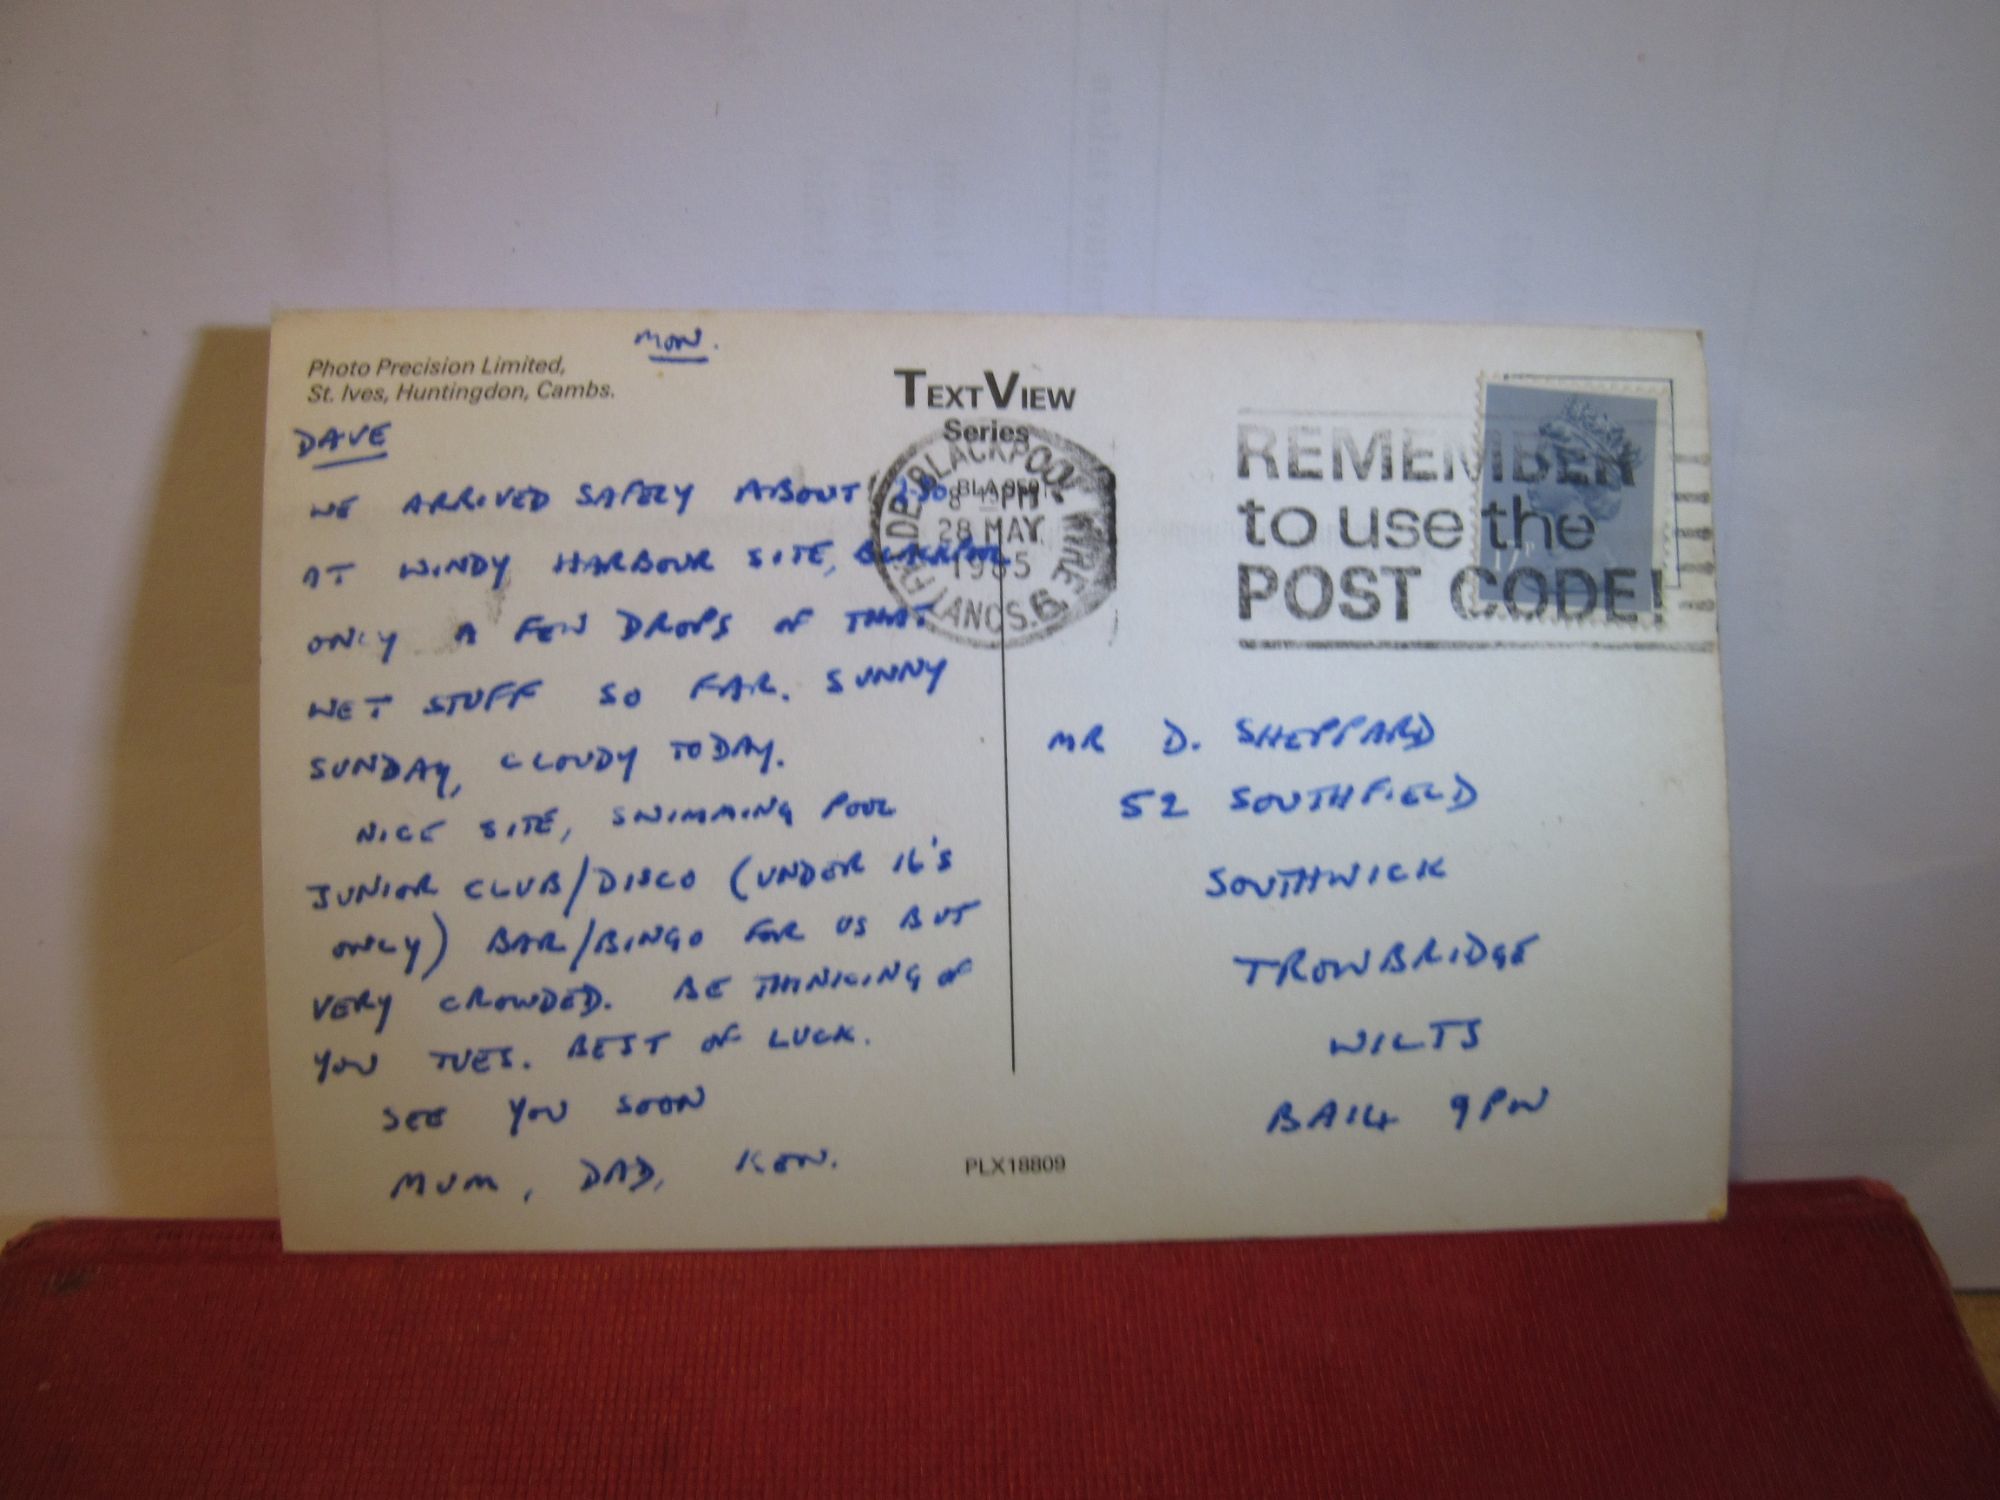 MON.
Photo Precision Limited,
St. Ives, Huntingdon, Cambs.
TEXT VIEW
Series
DAVE
WE ARRIVED SAFELY ABOUT
AT WINDY HARBOUR SITE, BLACKPOOL
ONLY A FEW DROPS OF THAT
WET STUFF SO FAR. SUNNY
SUNDAY, CLOUDY TODAY.
NICE SITE, SWIMMING POOL
JUNIOR CLUB/DISCO (UNDER 16'S
ONLY) BAR/BINGO FOR US BUT
VERY CROWDED. BE THINKING OF
YOU TUES. BEST OF LUCK.
SEE YOU SOON
MUM, DAD, KEN.
BLACKPOOL WYRE
PM
28 MAY
1985
FYLDE LANCS.
REMEMBER
to use the
POST CODE!
MR D. SHEPPARD
52 SOUTHFIELD
SOUTHWICK
TROWBRIDGE
WILTS
BA14 9PW
PLX18809